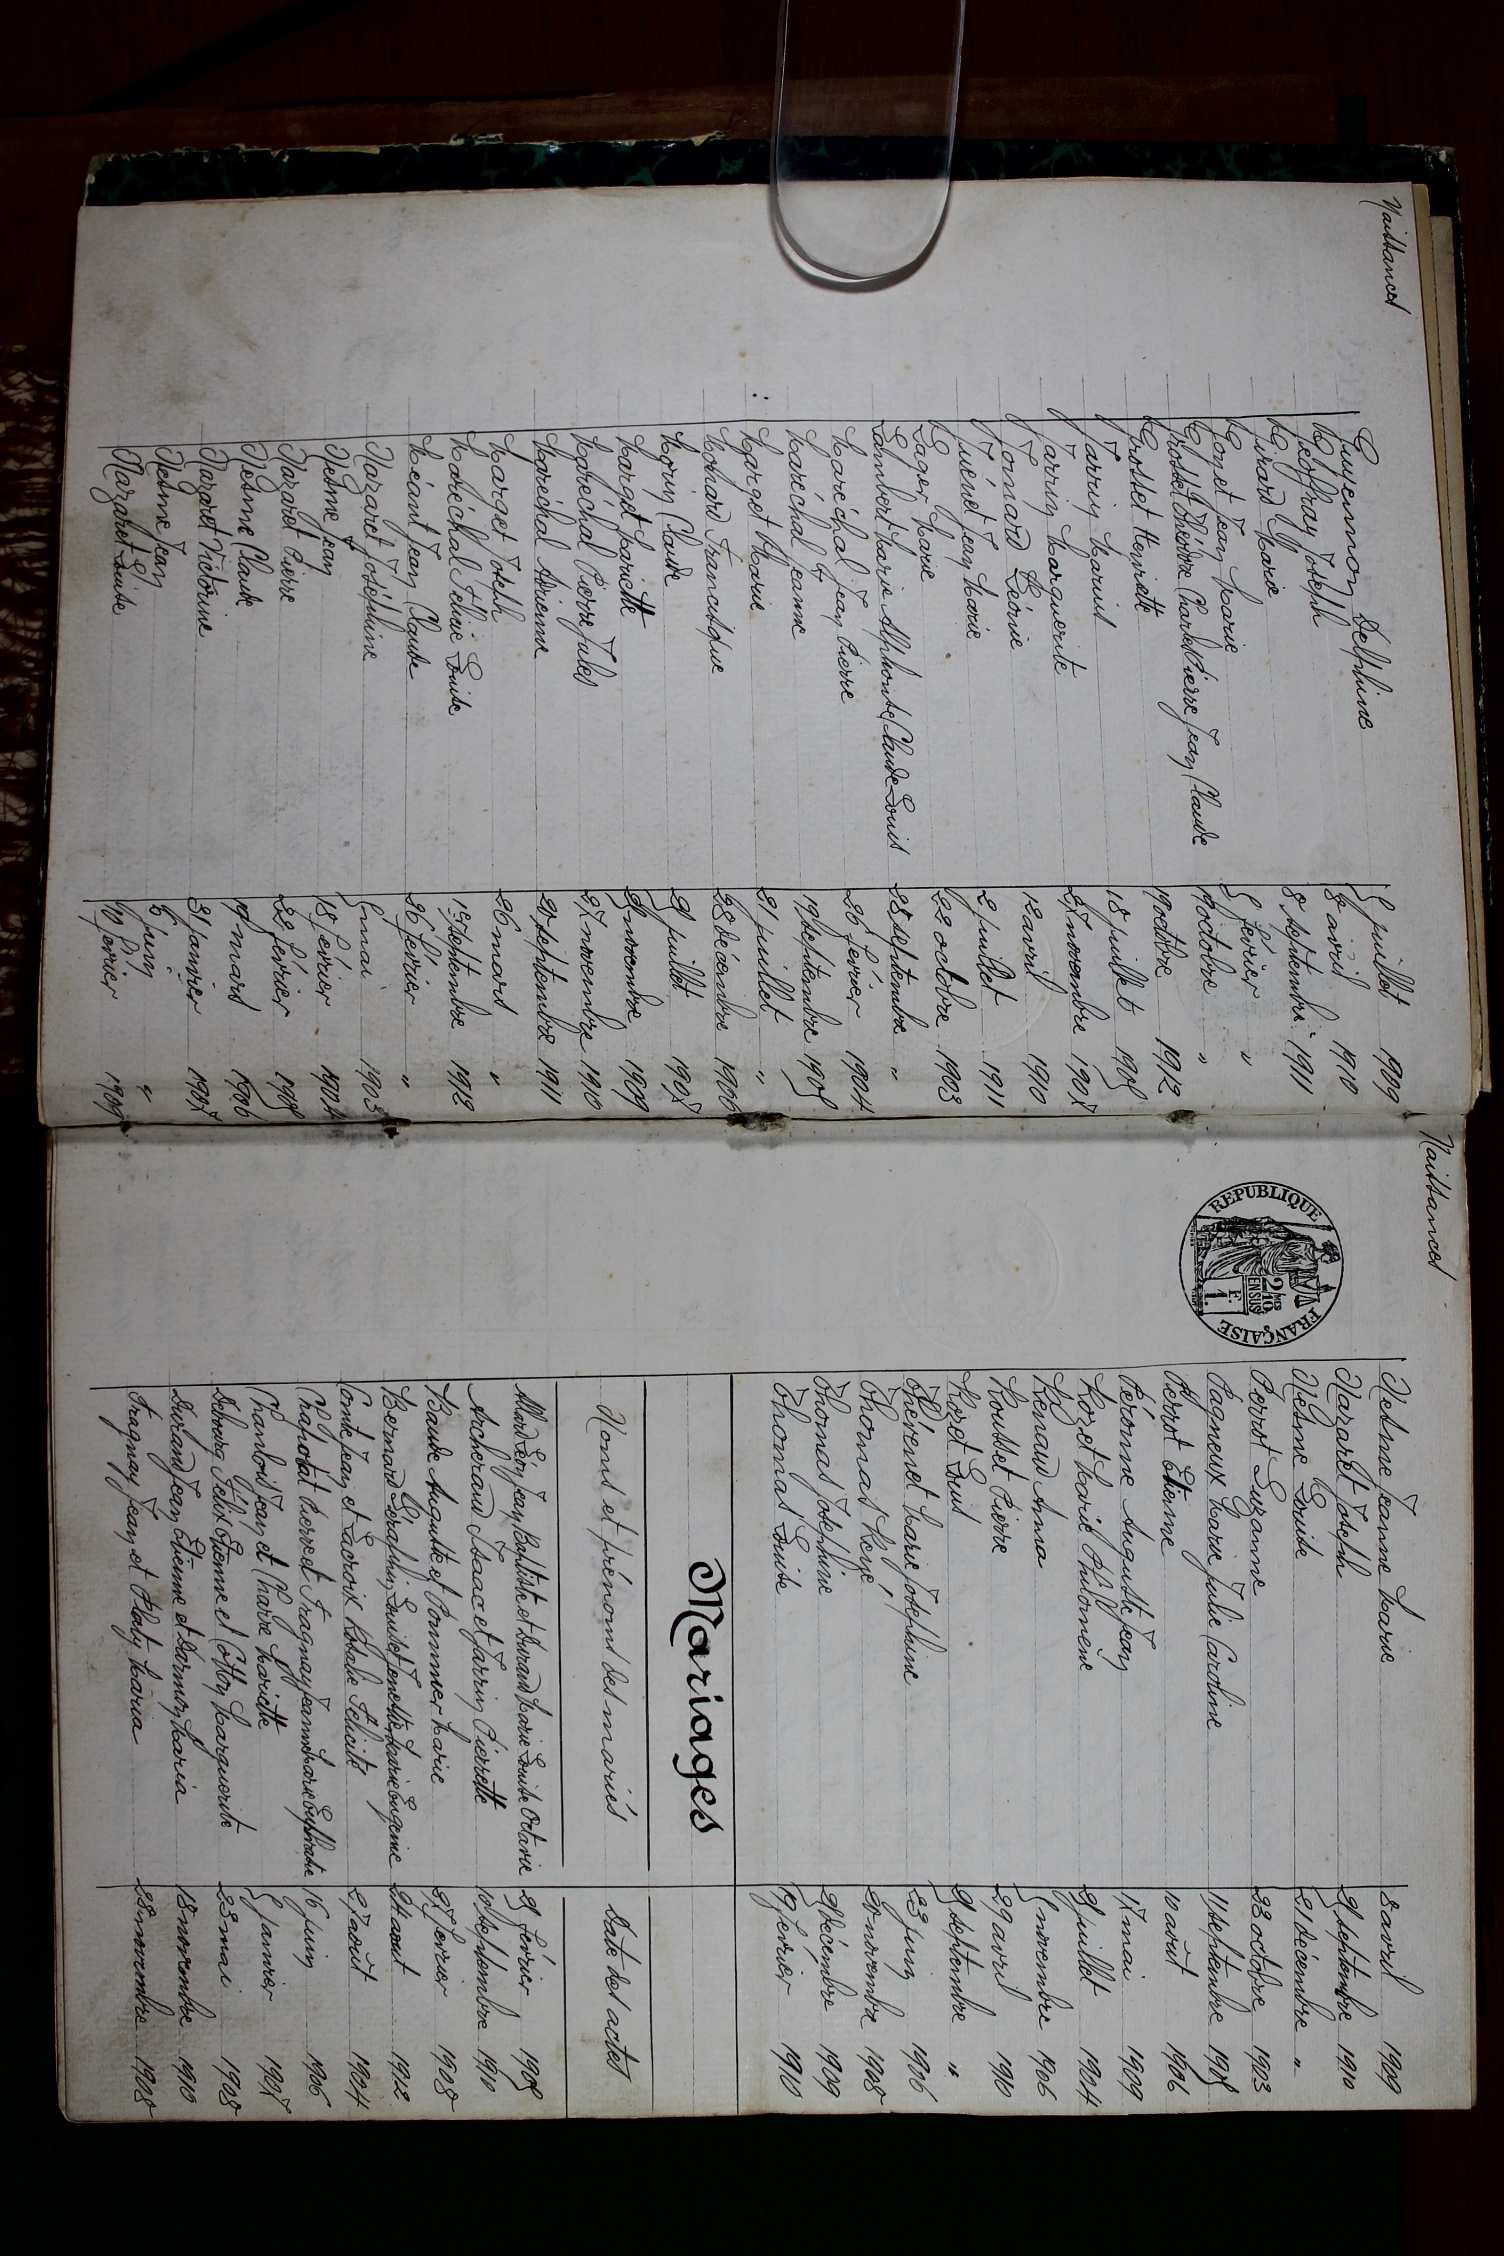 Naissances
Guyennon Delphine 5 juillet 1909
Geoffray Joseph 8 avril 1910
Girard Marie 8 septembre 1911
Gonet Jean Marie 5 février "
Grosset Thérèse Charles Pierre Jean Claude 19 octobre "
Grosset Henriette 19 octobre 1912
Jarrin Marius 18 juillet 1905
Jarrin Marguerite 27 novembre 1907
Jomard Léonie 12 avril 1910
Juénet Jean Marie 2 juillet 1911
Lager Marie 22 octobre 1903
Lambert Marie Alphonse Claude Louis 28 septembre "
Maréchal Jean Pierre 26 février 1904
Maréchal Jeanne 19 septembre 1905
Marget Marie 21 juillet "
Monard Francisque 28 décembre 1906
Morin Claude 21 juillet 1907
Marget Mariette novembre 1909
Maréchal Pierre Jules 27 novembre 1910
Maréchal Adrienne 20 septembre 1911
Marget Joseph 26 mars "
Maréchal Félicie Louise 15 septembre 1912
Méant Jean Claude 26 février "
Nazaret Joséphine 5 mai 1903
Nesme Jean 18 février 1904
Nazaret Pierre 22 février 1905
Nesme Claude 19 mars 1906
Nazaret Victorine 31 janvier 1907
Nesme Jean 6 juin "
Nazaret Louise 10 février 1909
Naissances
REPUBLIQUE FRANÇAISE
2/10 EN SUS
1 F.
Nesme Jeanne Marie 8 avril 1909
Nazaret Joseph 21 septembre 1910
Nesme Louise 21 décembre "
Perrot Suzanne 23 octobre 1903
Pagneux Marie Julie Caroline 11 septembre 1905
Perrot Etienne 10 août 1906
Péronne Auguste Jean 17 mai 1909
Rozet Marie Philomène 21 juillet 1904
Renaud Anna 5 novembre 1906
Rousset Pierre 29 avril 1910
Rozet Louis 21 septembre "
Thévenet Marie Joséphine 23 juin 1906
Thomas Rose 20 novembre 1908
Thomas Joséphine 21 décembre 1909
Thomas Louise 19 février 1910
Mariages
Noms et prénoms des mariés Date des actes
Allard Léon Jean Baptiste et Durand Marie Louise Octavie 25 février 1905
Archeraud Isaac et Jarrin Pierrette 10 septembre 1910
Baude Auguste et Pommier Marie 27 février 1908
Bernard Séraphin Louis et Marie Eugénie 24 août 1912
Comte Jean et Lacroix Rosalie Félicité 27 août 1904
Chapolat Pierre et Tragnay Jeanne Marie Euphrasie 16 juin 1906
Chambois Jean et Charre Mariette 5 janvier 1907
Debourg Félix Etienne et Cotton Marguerite 23 mai 1908
Durand Jean Etienne et Darmon Maria 18 novembre 1910
Tragnay Jean et Platy Maria 28 novembre 1908